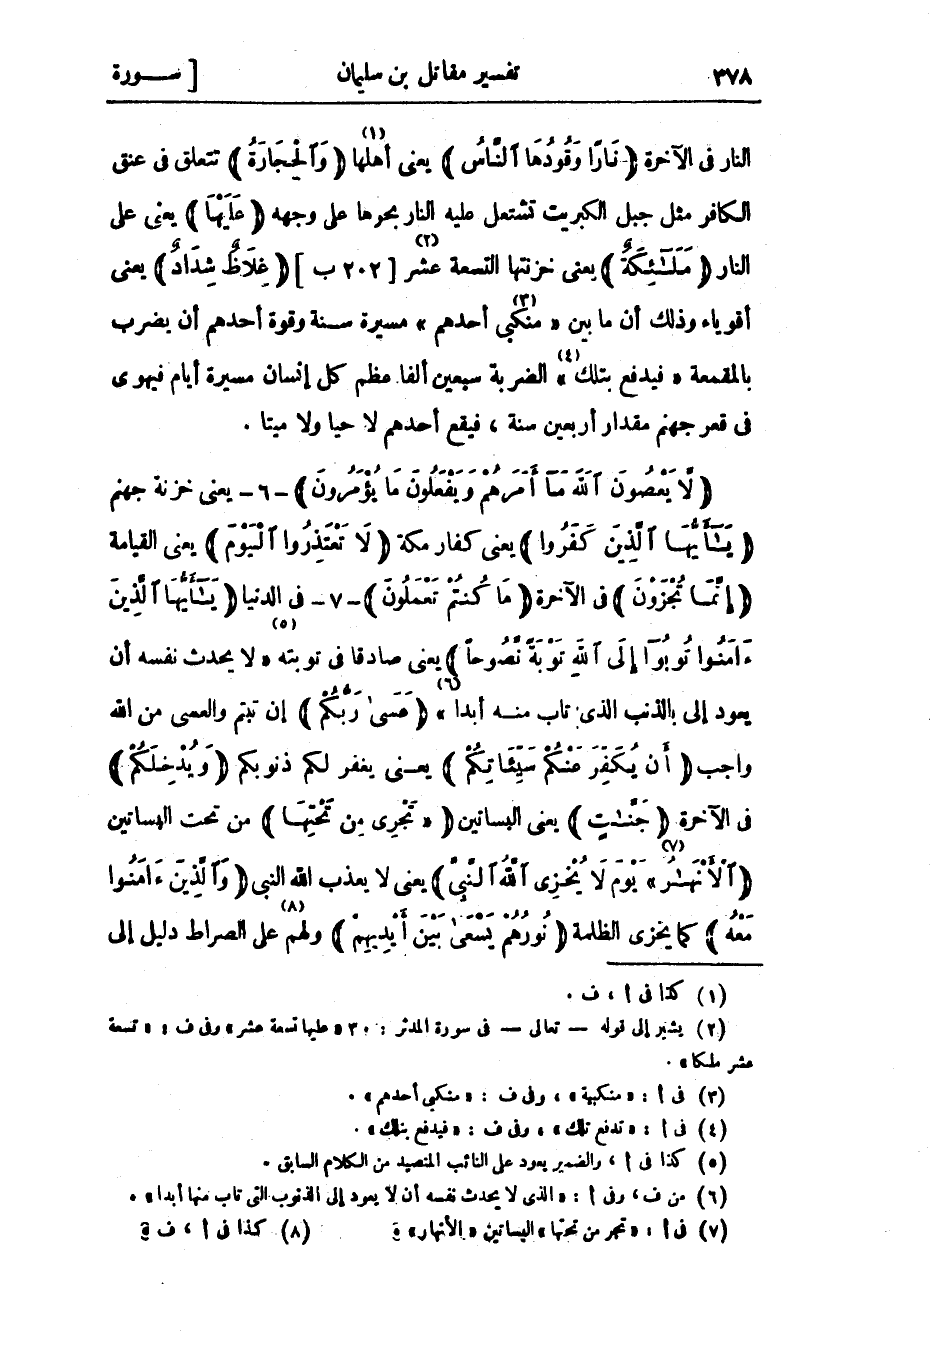 ٣٧٨ تفسير مقاتل بن سليمان [ سـورة
النار فى الآخرة ( نَارًا وَقُودُهَا ٱلنَّاسُ ) يعنى أهلها (١) ( وَٱلْحِجَارَةُ ) تتعلق فى عنق
الكافر مثل جبل الكبريت تشتعل عليه النار بحرها على وجهه ( عَلَيْهَا ) يعنى على
النار ( مَلَـٰٓئِكَةٌ ) يعنى خزنتها التسعة عشر (٢) [ ٢٠٢ ب ] ( غِلَاظٌ شِدَادٌ ) يعنى
أقوياء وذلك أن ما بين « منكبى أحدهم » (٣) مسيرة سنة وقوة أحدهم أن يضرب
بالمقمعة « فيدفع بتلك » (٤) الضربة سبعين ألفا. عظم كل إنسان مسيرة أيام فيهوى
فى قعر جهنم مقدار أربعين سنة ، فيقع أحدهم لا حيا ولا ميتا .
( لَّا يَعْصُونَ ٱللَّهَ مَآ أَمَرَهُمْ وَيَفْعَلُونَ مَا يُؤْمَرُونَ ) - ٦ - يعنى خزنة جهنم
( يَـٰٓأَيُّهَا ٱلَّذِينَ كَفَرُوا ) يعنى كفار مكة ( لَا تَعْتَذِرُوا ٱلْيَوْمَ ) يعنى القيامة
( إِنَّمَا تُجْزَوْنَ ) فى الآخرة ( مَا كُنتُمْ تَعْمَلُونَ ) - ٧ - فى الدنيا ( يَـٰٓأَيُّهَا ٱلَّذِينَ
ءَامَنُوا تُوبُوٓا إِلَى ٱللَّهِ تَوْبَةً نَّصُوحاً ) يعنى صادقا فى توبته (٥) « لا يحدث نفسه أن
يعود إلى بالذنب الذى تاب منه أبدا » (٦) ( عَسَىٰ رَبُّكُمْ ) إن تبتم والعسى من الله
واجب ( أَن يُكَفِّرَ عَنكُمْ سَيِّئَاتِكُمْ ) يعـنى يغفر لكم ذنوبكم ( وَيُدْخِلَكُمْ )
فى الآخرة ( جَنَّـٰتٍ ) يعنى البساتين ( « تَجْرِى مِن تَحْتِهَـا ) من تحت البساتين
( ٱلْأَنْهَـٰرُ » (٧) يَوْمَ لَا يُخْزِى ٱللَّهُ ٱلنَّبِىَّ ) يعنى لا يعذب الله النبى ( وَٱلَّذِينَ ءَامَنُوا
مَعَهُ ) كما يخزى الظلمة ( نُورُهُمْ يَسْعَىٰ بَيْنَ أَيْدِيهِمْ ) ولهم (٨) على الصراط دليل إلى
(١) كذا فى أ ، ف .
(٢) يشير إلى قوله — تعالى — فى سورة المدثر : ٣٠ « عليها تسعة عشر » وفى ف : « تسعة
عشر ملكا » .
(٣) فى أ : « منكبية » ، وفى ف : « منكبى أحدهم » .
(٤) فى أ : « تدفع تلك » ، وفى ف : « فيدفع بتلك » .
(٥) كذا فى أ ، والضمير يعود على التائب المتصيد من الكلام السابق .
(٦) من ف ، وفى أ : « الذى لا يحدث نفسه أن لا يعود إلى الذنوب التى تاب منها أبدا » .
(٧) فى أ : « تجر من تحتها » البساتين « الأنهار » . (٨) كذا فى أ ، ف .